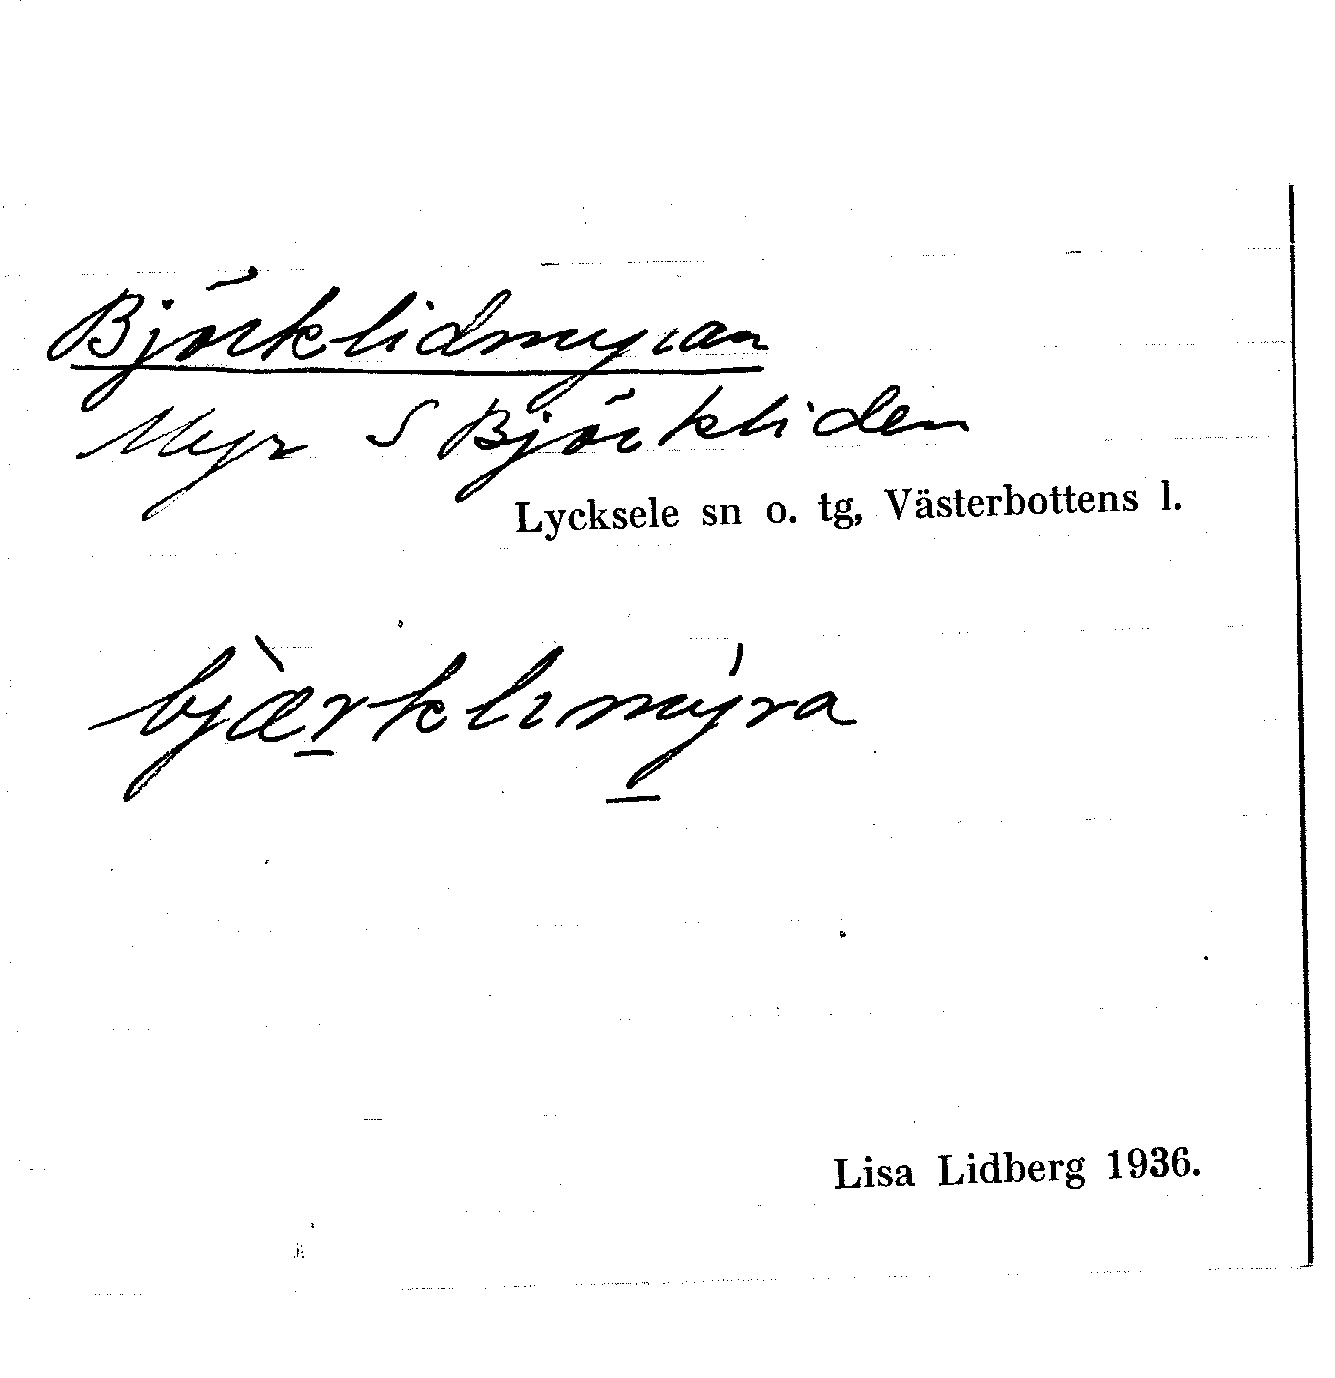 Björklidmyran
Myr S Björkliden
Lycksele sn o. tg, Västerbottens l.
bjæ̀r̲klımý̲ra
Lisa Lidberg 1936.